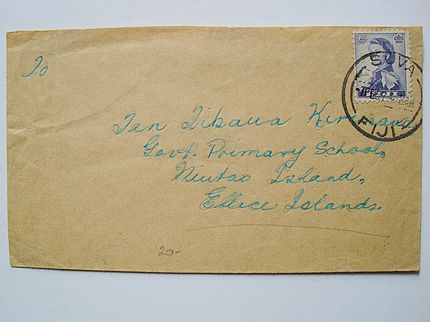 To
SUVA
FIJI
FIJI
Ten Tikawa
Govt Primary School,
Niutao Island,
Ellice Islands.
20-